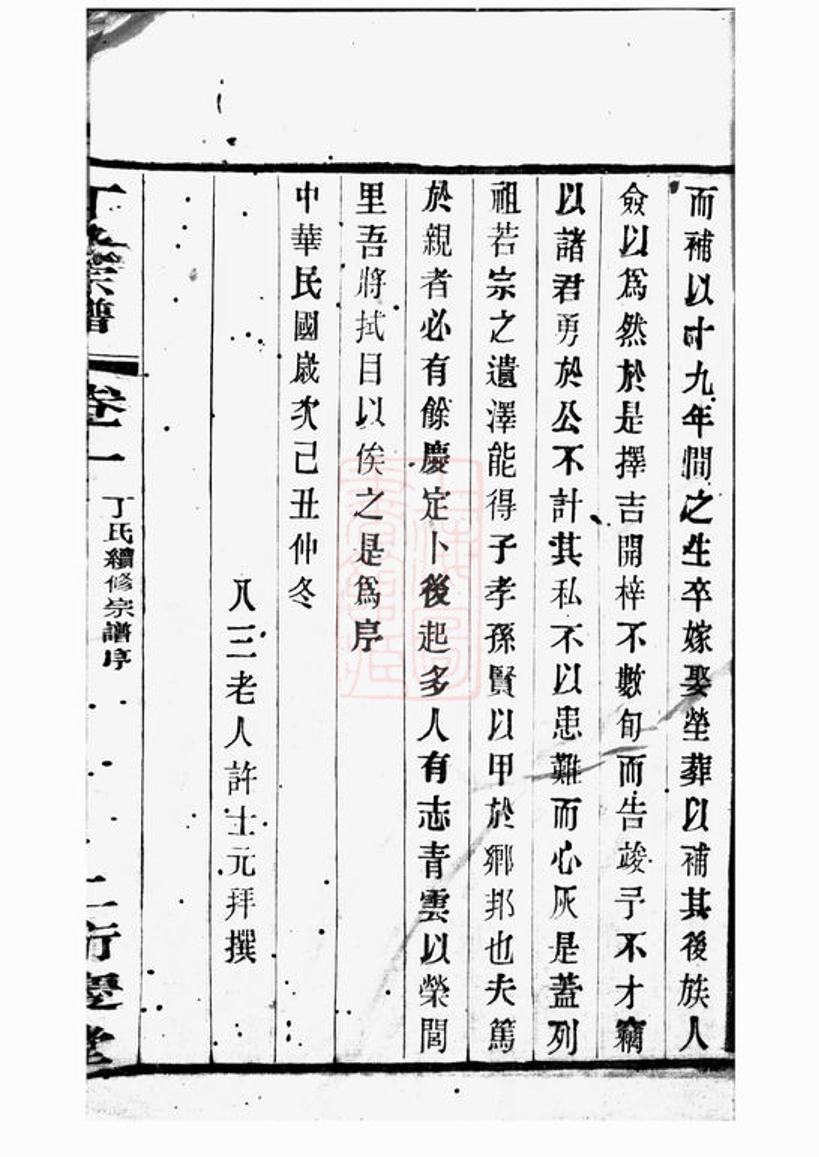 而補以廿九年間之生卒嫁娶塋葬以補其後族人
僉以爲然於是擇吉開梓不數旬而告竣予不才竊
以諸君勇於公不計其私不以患難而心灰是蓋列
祖若宗之遺澤能得子孝孫賢以甲於鄉邦也夫篤
於親者必有餘慶定卜後起多人有志青雲以榮閭
里吾將拭目以俟之是爲序
中華民國歲次己丑仲冬
八三老人許士元拜撰
丁氏宗譜 卷一 丁氏續修宗譜序 二 衍慶堂